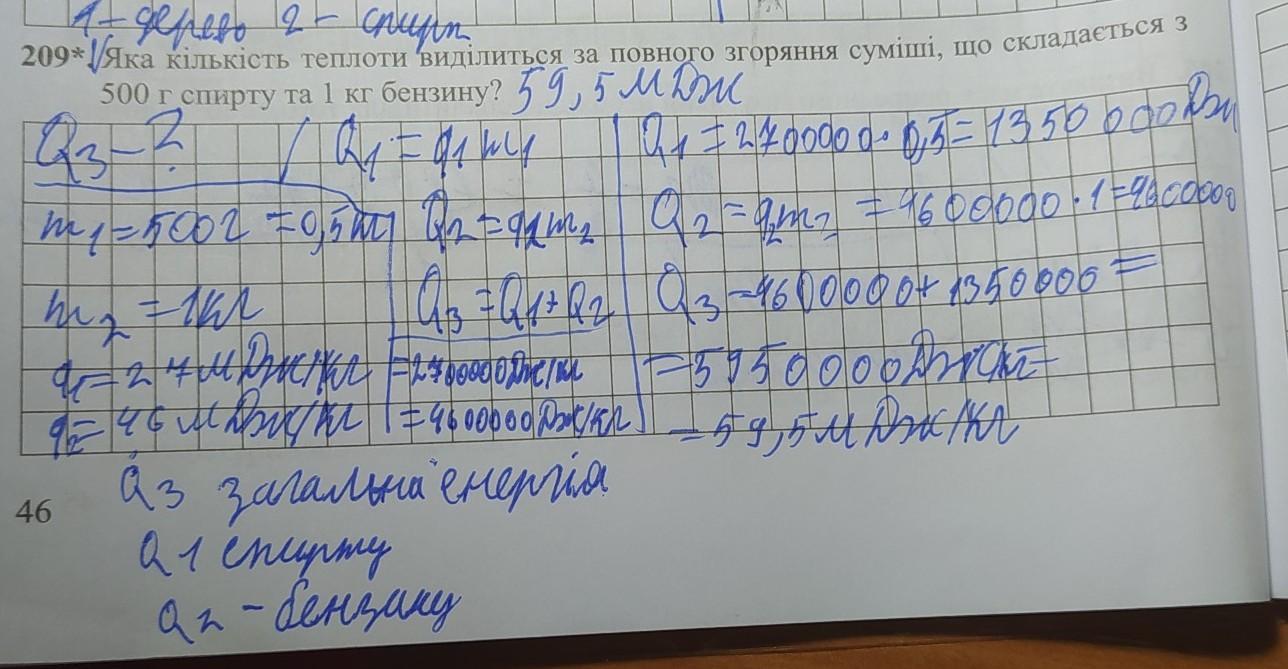 1 – дерево 2 – спирт
209* Яка кількість теплоти виділиться за повного згоряння суміші, що складається з
500 г спирту та 1 кг бензину? 59,5 МДж
Q3 – ?
m1 = 500г = 0,5кг
m2 = 1кг
q1 = 27 МДж/кг = 2700000Дж/кг
q2 = 46 МДж/кг = 4600000Дж/кг
Q1 = q1 m1
Q2 = q2 m2
Q3 = Q1 + Q2
Q1 = 2700000 · 0,5 = 1350000Дж
Q2 = q2m2 = 4600000 · 1 = 4600000
Q3 = 4600000 + 1350000 =
= 5950000Дж/кг =
= 59,5 МДж/кг
Q3 загальна енергія
46
Q1 спирту
Q2 – бензину